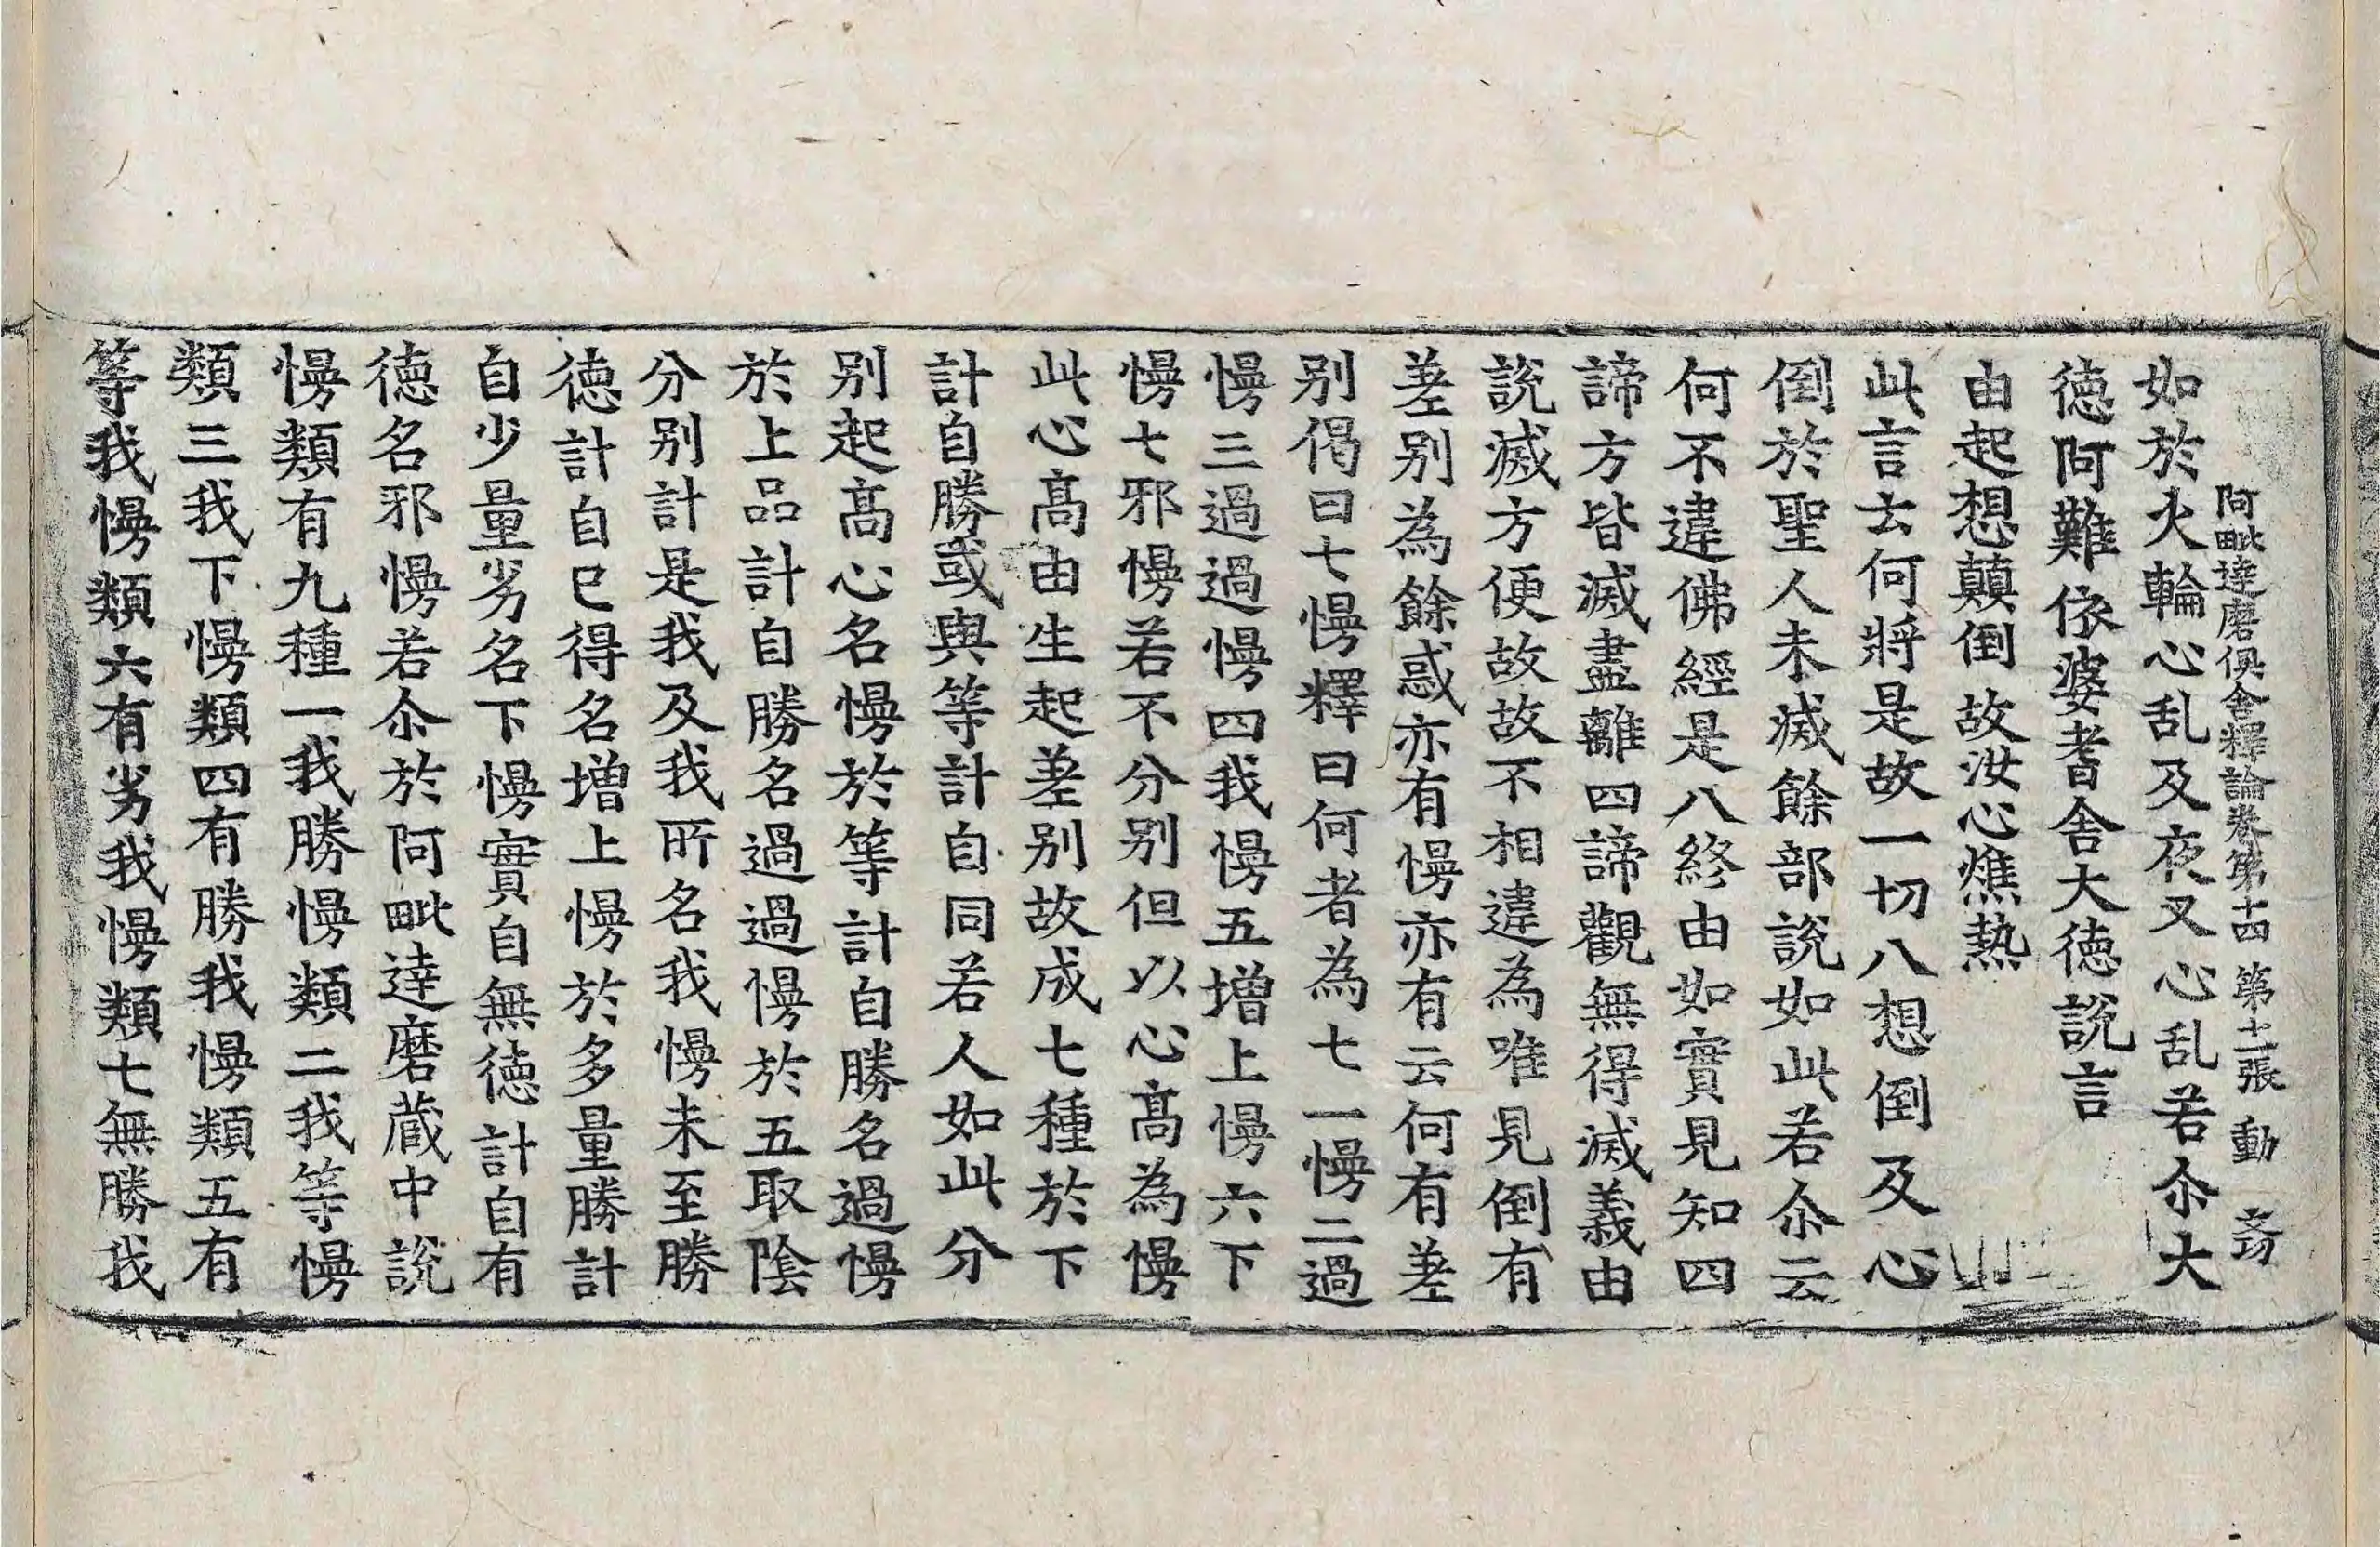 阿毗達磨俱舍釋論卷第十四 第十二張 動
如於火輪心乱及夜叉心乱若尒大
德阿難依婆耆舍大德說言
由起想顛倒 故汝心燋熱
此言去何將是故一切八想倒及心
倒於聖人未滅餘部說如此若尒云
何不違佛經是八終由如實見知四
諦方皆滅盡離四諦觀無得滅義由
說滅方便故故不相違為唯見倒有
差別為餘惑亦有慢亦有云何有差
別偈曰七慢釋曰何者為七一慢二過
慢三過過慢四我慢五增上慢六下
慢七邪慢若不分別但以心高為慢
此心高由生起差別故成七種於下
計自勝或與等計自同若人如此分
別起高心名慢於等計自勝名過慢
於上品計自勝名過過慢於五取陰
分別計是我及我所名我慢未至勝
德計自已得名增上慢於多量勝計
自少量劣名下慢實自無德計自有
德名邪慢若尒於阿毗達磨藏中說
慢類有九種一我勝慢類二我等慢
類三我下慢類四有勝我慢類五有
等我慢類六有劣我慢類七無勝我